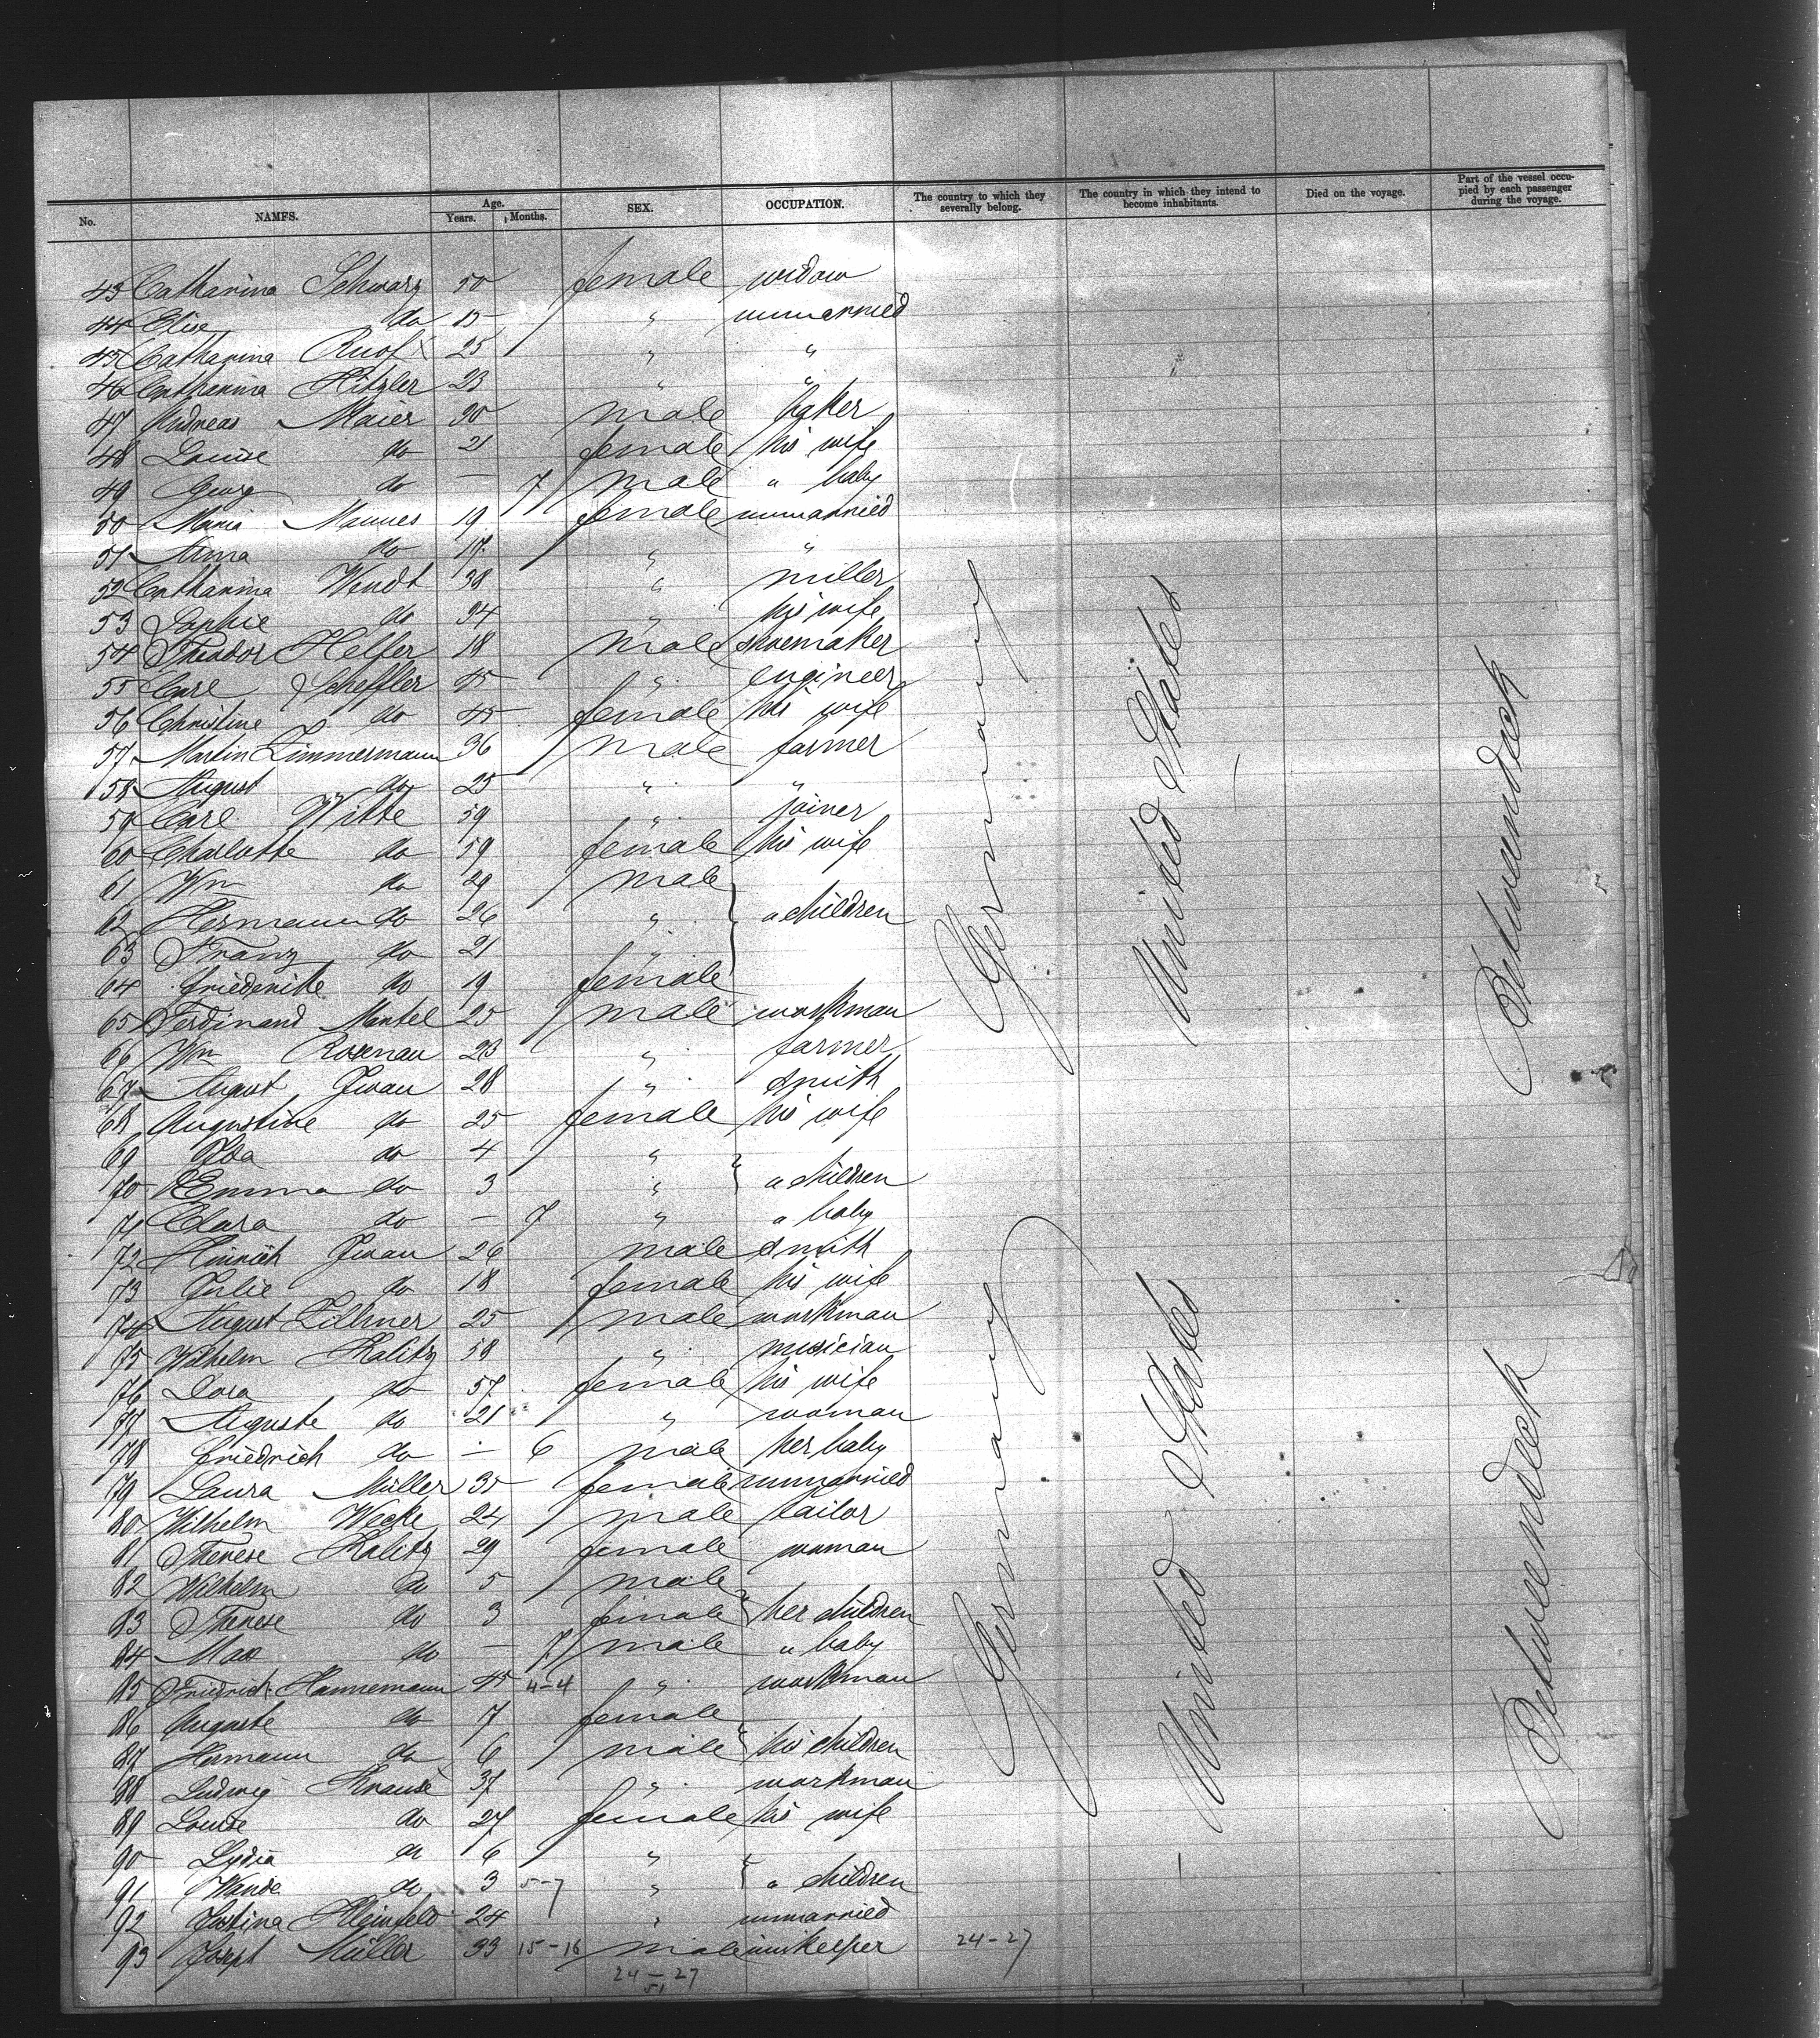 No. NAMES. Age. Years. Months. SEX. OCCUPATION. The country to which they severally belong. The country in which they intend to become inhabitants. Died on the voyage. Part of the vessel occupied by each passenger during the voyage.
43 Catharina Schwarz 50 female widow
44 Elise do 15 " unmarried
45 Catharina Ruof 25 " "
46 Catharina Hitzler 23 " "
47 Andreas Maier 30 male baker
48 Louise do 21 female his wife
49 Georg do — 7 male " baby
50 Maria Mannes 19 female unmarried
51 Anna do 17 " "
52 Catharina Wendt 38 " miller
53 Sophie do 34 " his wife
54 Theodor Helfer 18 male shoemaker
55 Carl Scheffler 45 " engineer
56 Christine do 45 female his wife
57 Martin Zimmermann 36 male farmer
58 August do 25 " "
59 Carl Witte 59 " joiner
60 Charlotte do 59 female his wife
61 Wm do 29 male
62 Hermann do 26 " " children
63 Franz do 21 "
64 Friederike do 19 female
65 Ferdinand Mantel 25 male workman
66 Wm Rosenau 23 " farmer
67 August Iwan 28 " smith
68 Augustine do 25 female his wife
69 Ida do 4 "
70 Emma do 3 " " children
71 Clara do — 7 " " baby
72 Hinrich Iwan 26 male smith
73 Julie do 18 female his wife
74 August Zillmer 25 male workman
75 Wilhelm Kalitz 58 " musician
76 Dora do 57 female his wife
77 Auguste do 21 " woman
78 Friedrich do — 6 male her baby
79 Laura Müller 35 female unmarried
80 Wilhelm Wecke 24 male tailor
81 Therese Kalitz 29 female woman
82 Wilhelm do 5 male
83 Therese do 3 female her children
84 Max do — 7 male " baby
85 Friedrich Hannemann 45 4-4 " workman
86 Auguste do 7 female
87 Hermann do 6 male his children
88 Ludwig Krause 37 " workman
89 Louise do 27 female his wife
90 Lydia do 6 "
91 Wanda do 3 5-7 " " children
92 Justina Kleinfeld 24 " unmarried
93 Joseph Müller 33 15-16 male innkeeper 24-27
24-27
51
Germany United States Betweendeck
Germany United States Betweendeck